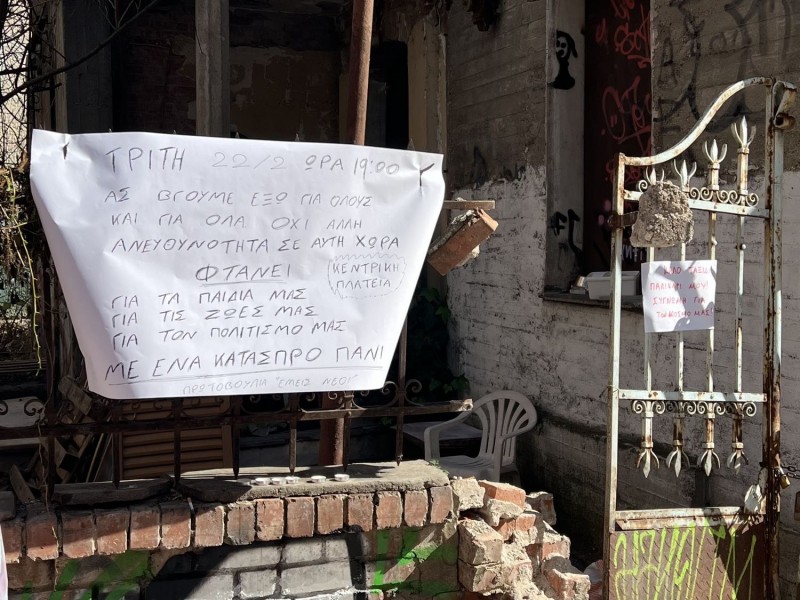 ΤΡΙΤΗ 22/2 ΩΡΑ 19:00
ΑΣ ΒΓΟΥΜΕ ΕΞΩ ΓΙΑ ΟΛΟΥΣ
ΚΑΙ ΓΙΑ ΟΛΑ ΟΧΙ ΑΛΛΗ
ΑΝΕΥΘΥΝΟΤΗΤΑ ΣΕ ΑΥΤΗ ΧΩΡΑ
ΦΤΑΝΕΙ
ΚΕΝΤΡΙΚΗ
ΠΛΑΤΕΙΑ
ΓΙΑ ΤΑ ΠΑΙΔΙΑ ΜΑΣ
ΓΙΑ ΤΙΣ ΖΩΕΣ ΜΑΣ
ΓΙΑ ΤΟΝ ΠΟΛΙΤΙΣΜΟ ΜΑΣ
ΜΕ ΕΝΑ ΚΑΤΑΣΠΡΟ ΠΑΝΙ
ΠΡΩΤΟΒΟΥΛΗ ΕΜΕΙΣ ΝΕΟΙ
ΚΑΛΟ ΤΑΞΙΔΙ
ΠΑΛΙΚΑΡΙ ΜΟΥ!
ΣΥΓΝΩΜΗ ΓΙΑ
ΤΟΝ ΚΟΣΜΟ ΜΑΣ!